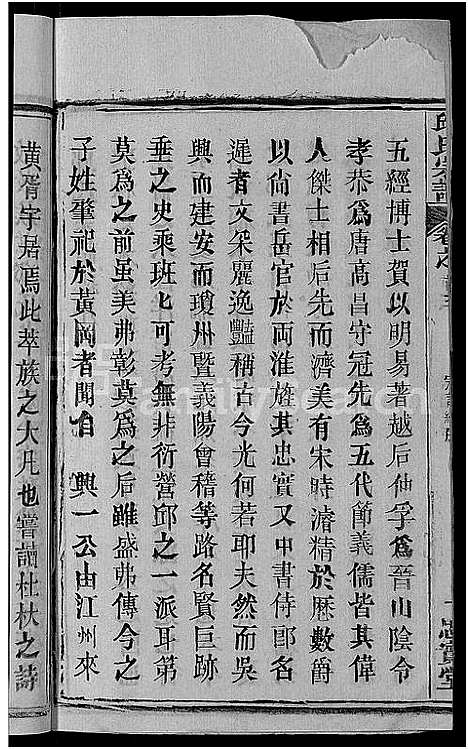 邱氏宗譜
卷之首
五經博士賀以明易著越后仲孚為晉山陰令
孝恭為唐高昌守冠先為五代節義儒皆其偉
人傑士相后先而濟美有宋時濬精於歷數爵
以尚書岳官於両淮旌其忠實又中書侍郎名
遲者文采麗逸豔稱古今光何若耶夫然而吳
興而建安而瓊州暨義陽會稽等路名賢巨跡
垂之史乘班匕可考無非衍營邱之一派耳第
莫為之前虽美弗彰莫為之后雖盛弗傳今之
子姓肇祀於黃岡者聞伯興一公由江州來
黄胥宇居焉此萃族之大凡也嘗誦杕杜之詩